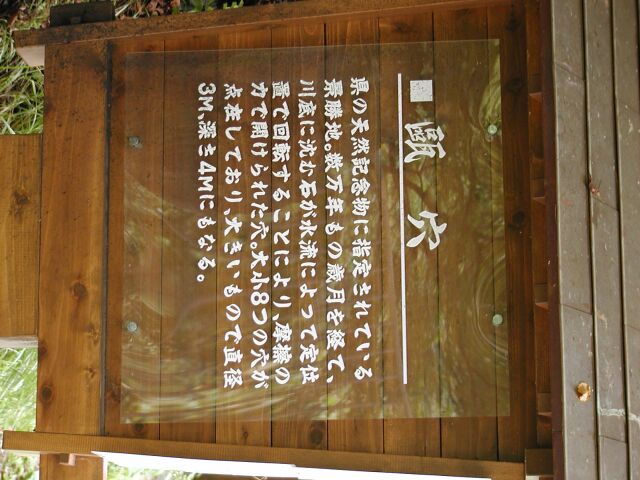 ■ 甌穴
県の天然記念物に指定されている
景勝地。数万年もの歳月を経て、
川底に沈む石が水流によって定位
置で回転することにより、摩擦の
力で開けられた穴。大小8つの穴が
点在しており、大きいもので直径
3M、深さ4Mにもなる。